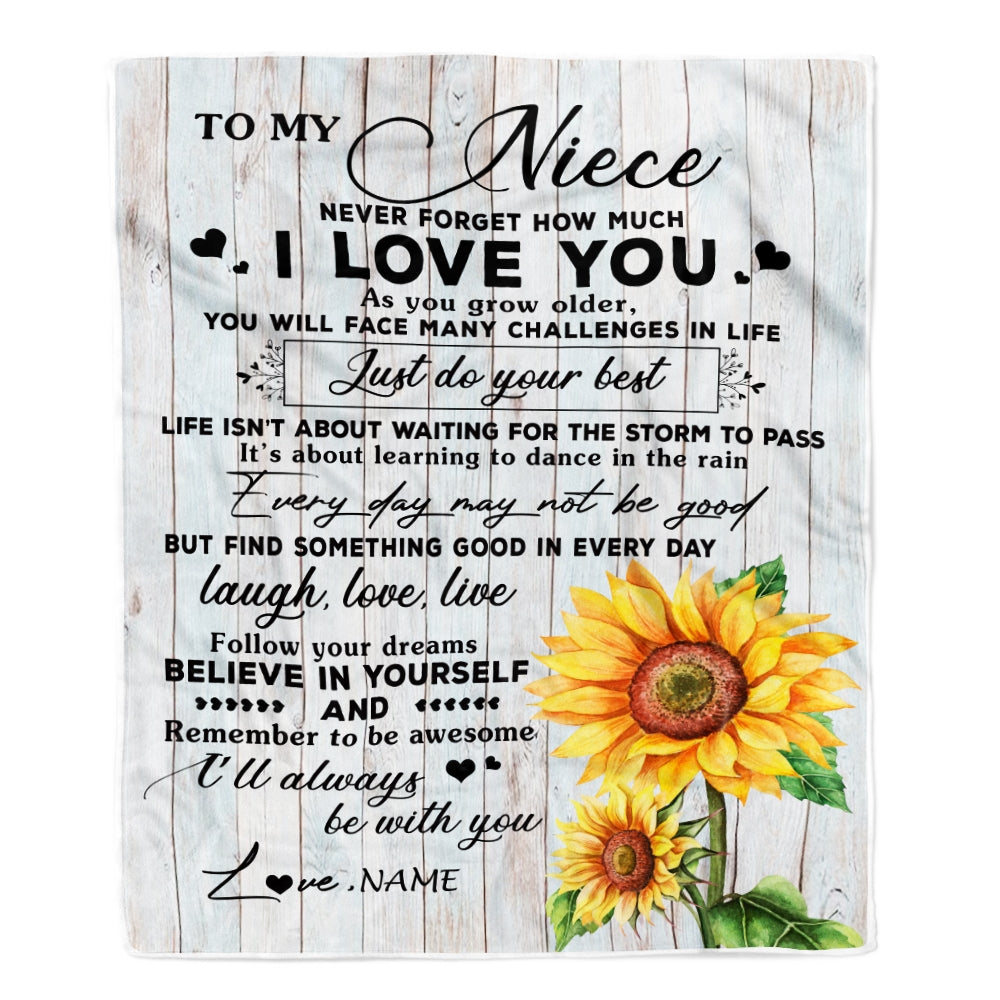 TO MY Niece
NEVER FORGET HOW MUCH
I LOVE YOU
As you grow older,
YOU WILL FACE MANY CHALLENGES IN LIFE
Just do your best
LIFE ISN'T ABOUT WAITING FOR THE STORM TO PASS
It's about learning to dance in the rain
Every day may not be good
BUT FIND SOMETHING GOOD IN EVERY DAY
laugh, love, live
Follow your dreams
BELIEVE IN YOURSELF
AND
Remember to be awesome
I'll always
be with you
Love, NAME